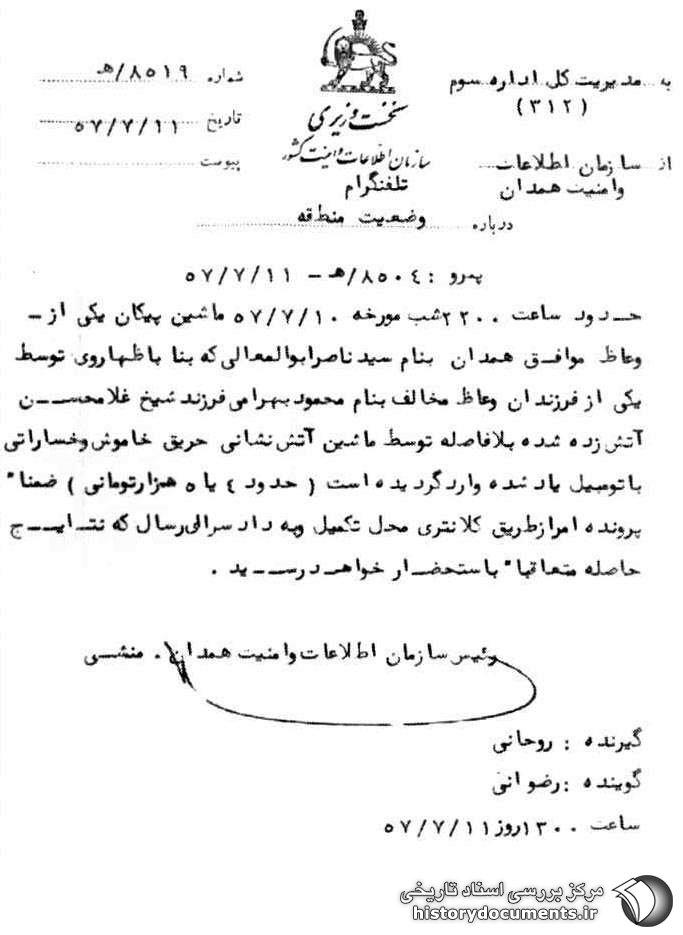 به مدیریت کل اداره سوم
(۳۱۲)
از سازمان اطلاعات
وامنیت همدان
نخست وزیری
سازمان اطلاعات و امنیت کشور
تلفنگرام
شماره ۸۵۱۹/هـ
تاریخ ۵۷/۷/۱۱
پیوست
درباره وضعیت منطقه
پیرو : ۸۵۰٤/هـ - ۵۷/۷/۱۱
حدود ساعت ۲۲۰۰ شب مورخه ۵۷/۷/۱۰ ماشین پیکان یکی از -
وعاظ موافق همدان بنام سید ناصر ابوالمعالی که بنا باظهاروی توسط
یکی از فرزندان وعاظ مخالف بنام محمود بهرامی فرزند شیخ غلامحسن
آتش زده شده بلافاصله توسط ماشین آتش نشانی حریق خاموش وخساراتی
باتومبیل یاد شده وارد گردیده است ( حدود ٤ یا ۵ هزارتومانی ) ضمنا"
پرونده امر ازطریق کلانتری محل تکمیل وبه دادسرا ارسال که نتایج
حاصله متعاقبا" باستحضار خواهد رسید .
رئیس سازمان اطلاعات وامنیت همدان . منشی
گیرنده : روحانی
گوینده : رضوانی
ساعت ۱۳۰۰ روز ۵۷/۷/۱۱
مرکز بررسی اسناد تاریخی
historydocuments.ir